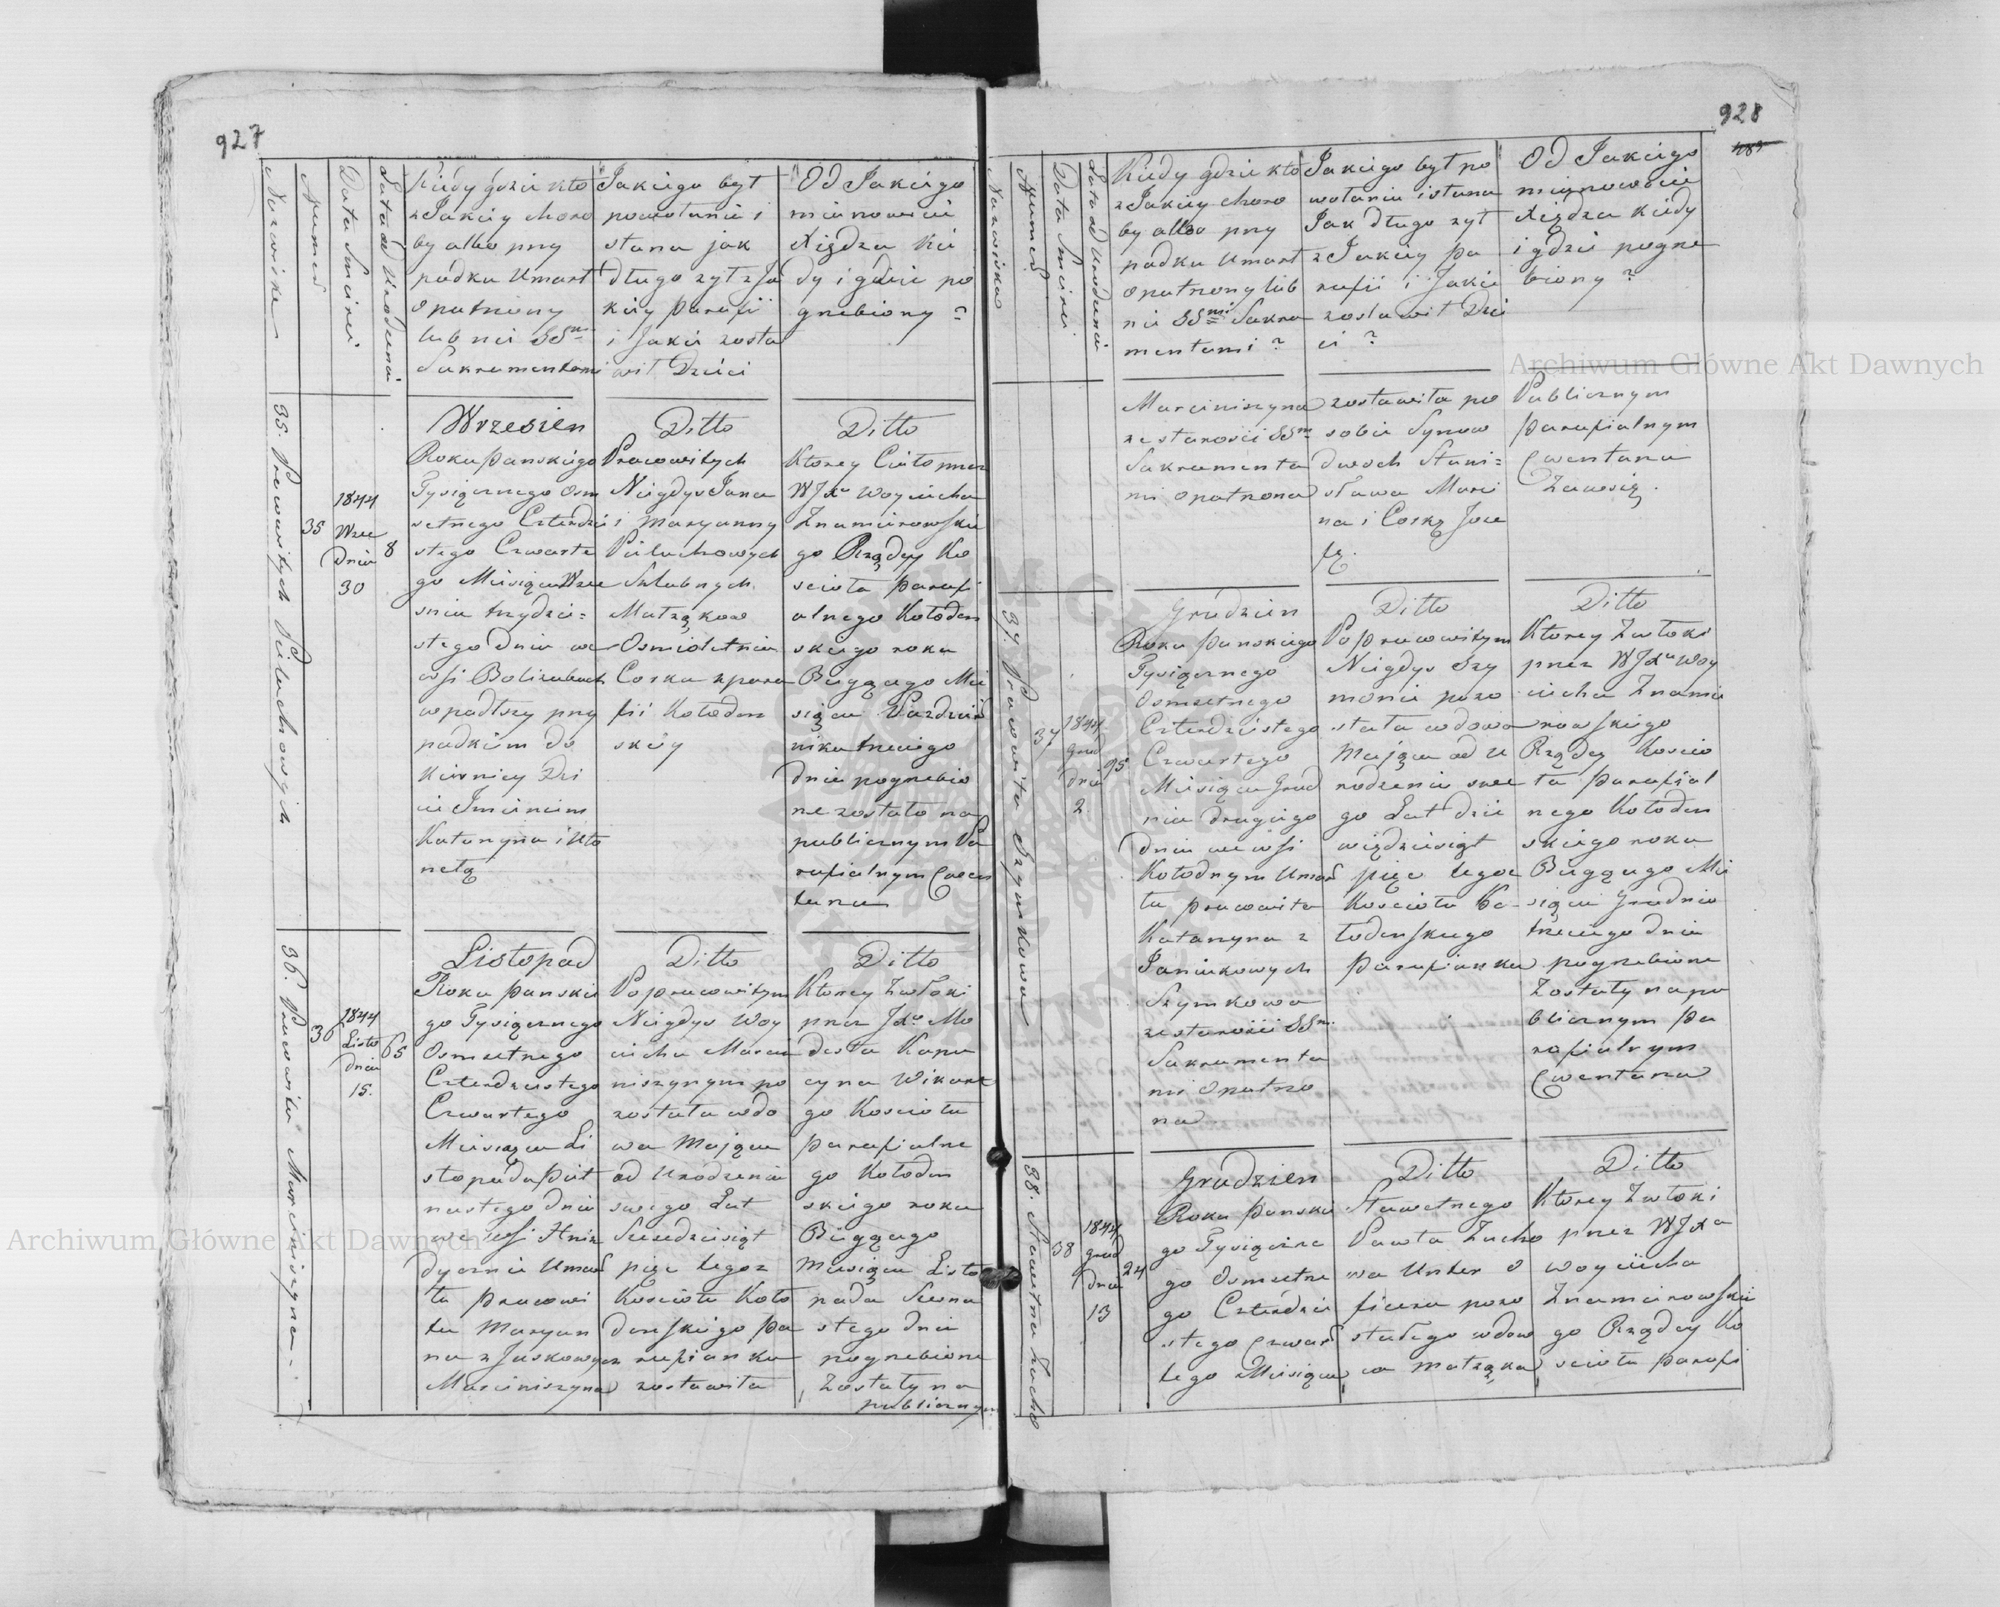 927
Nazwisko
Numer
Data Smierci
Lata od Urodzenia
Kiedy gdzie kto
z Jakiey choro
by albo przy
padku Umarł
opatrzony
lub nie SSmi
Sakramentami
Jakiego był
powołania i
stanu jak
długo żył z Ja
kiey Parafii
i Jakie zosta
wił Dzieci
Od Jakiego
mianowicie
Xiędza Kie
dy i gdzie po
grzebiony?
35. Pracowitych Pieluchowych
35
1844
Wrze
Dnia
30
8
Wrzesien
Roku Panskiego
Tysiącznego Osm
setnego Czterdzie
stego Czwarte
go Miesiąca Wrze
snia trzydzie=
stego dnia we
wsi
wpadłszy przy
padkiem do
Kiernicy Dzi
cie Imieniem
Katarzyna i Uto
nęła
Ditto
Pracowitych
Niegdys Jana
i Maryanny
Pieluchowych
Szlubnych
Małżąkow
Osmioletnia
Corka z para
fii Kołoden
skiey
Ditto
Ktorey Ciało przez
WJXa Woyciecha
Znamierowskie
go Rządcy Ko
scioła Parafi
alnego Kołoden
skiego roku
Bieżącego Mie
siąca Pazdzier
nika trzeciego
dnia pogrzebio
ne zostało na
publicznym Pa
rafialnym Cmen
tarzu
36. Pracowita Marciniszyna.
36
1844
Listo
dnia
15.
65
Listopad
Roku Panskie
go Tysiącznego
Osmsetnego
Czterdziestego
Czwartego
Miesiąca Li
stopada Piet
nastego dnia
we wsi Hniz
dycznie Umar
ła Pracowi
ta Maryan
na z Juskowych
Marciniszyna
Ditto
Po pracowitym
Niegdys Woy
ciechu Marci
niszynym po
została wdo
wa Mająca
od Urodzenia
swego Lat
Szesdziesiąt
pięc tegoz
Koscioła Koło
denskiego Pa
rafianka
zostawiła
Ditto
Ktorey Zwłoki
przez JXa Mo
desta Kapu
cyna Wikare
go Koscioła
Parafialne
go Kołoden
skiego roku
Bieżącego
Miesiąca Listo
pada Siedmna
stego dnia
pogrzebione
Zostały na
publicznym
928
Nazwisko
Numer
Data Smierci
Lata od Urodzenia
Kiedy gdzie kto
z Jakiey choro
by albo przy
padku Umarł
opatrzony lub
nie SSmi Sakra
mentami?
Jakiego był po
wołania i stanu
Jak długo żył
z Jakiey Pa
rafii i Jakie
zostawił Dzie
ci?
Od Jakiego
mianowicie
Xiędza kiedy
i gdzie pogrze
biony?
Marciniszyna
ze starości SSmi
Sakramenta
mi opatrzona
zostawiła po
sobie Synow
dwoch Stani=
sława Marci
na i Corkę Joze
fę.
Publicznym
Parafialnym
Cmentarzu
37. Pracowita Szymkowa
37
1844
grud
dnia
2
95
Grudzien
Roku Panskiego
Tysiącznego
Osmsetnego
Czterdziestego
Czwartego
Miesiąca Grud
nia drugiego
dnia we wsi
Kołodnym Umar
ła pracowita
Katarzyna z
Janiukowych
Szymkowa
ze starości SSmi
Sakramenta
mi Opatrzo
na
Ditto
Po pracowitym
Niegdys Szy
monie pozo
stała wdowa
Mająca od U
rodzenia swe
go Lat dzie
więdziesiąt
pięc tegoz
Koscioła Ko-
łodenskiego
Parafianka
Ditto
Ktorey Zwłoki
przez WJXa Woy
ciecha Znamie
rowskiego
Rządcy Koscio
ła Parafial
nego Kołoden
skiego roku
Bieżącego Mie
siąca Grudnia
trzeciego dnia
pogrzebione
Zostały na pu
blicznym Pa
rafialnym
Cmentarzu
38. Sławetna Zucho
38
1844
grud
dnia
13
24
Grudzien
Roku Panskie
go Tysiączne
go Osmsetne
go Czterdzie
stego Czwar
tego Miesiąca
Ditto
Sławetnego
Pawła Zucho
wa Unter O
ficera pozo
stałego wdow
ca Małżąka
Ditto
Ktorey Zwłoki
przez WJXa
Woyciecha
Znamierowskie
go Rządcy Ko
scioła Parafi
Archiwum Główne Akt Dawnych
Archiwum Główne Akt Dawnych